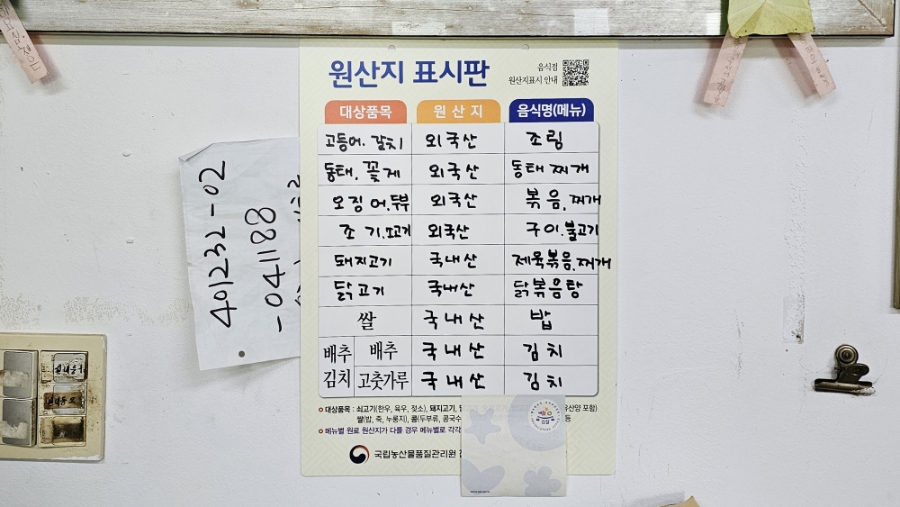 원산지 표시판
음식점
원산지표시 안내
대상품목 원산지 음식명(메뉴)
고등어. 갈치 외국산 조림
동태. 꽃게 외국산 동태찌개
오징어.두부 외국산 볶음.찌개
조기. 외국산 구이.불고기
돼지고기 국내산 제육볶음.찌개
닭고기 국내산 닭볶음탕
쌀 국내산 밥
배추김치 배추 국내산 김치
고춧가루 국내산 김치
대상품목 : 쇠고기(한우, 육우, 젖소), 돼지고기, 포함)
쌀(밥, 죽, 누룽지), 콩(두부류, 콩국수 등
메뉴별 원료 원산지가 다를 경우 메뉴별로 각각
국립농산물품질관리원
401232-02
-041188